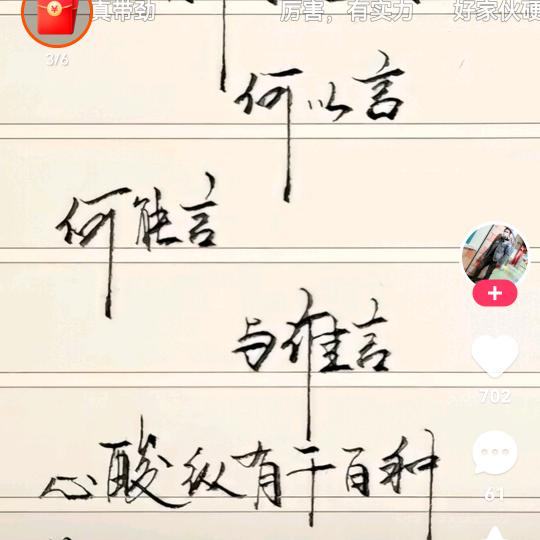 真带劲 厉害，有实力 好家伙硬
3/6
何以言
何能言
与谁言
702
心酸纵有千百种
61